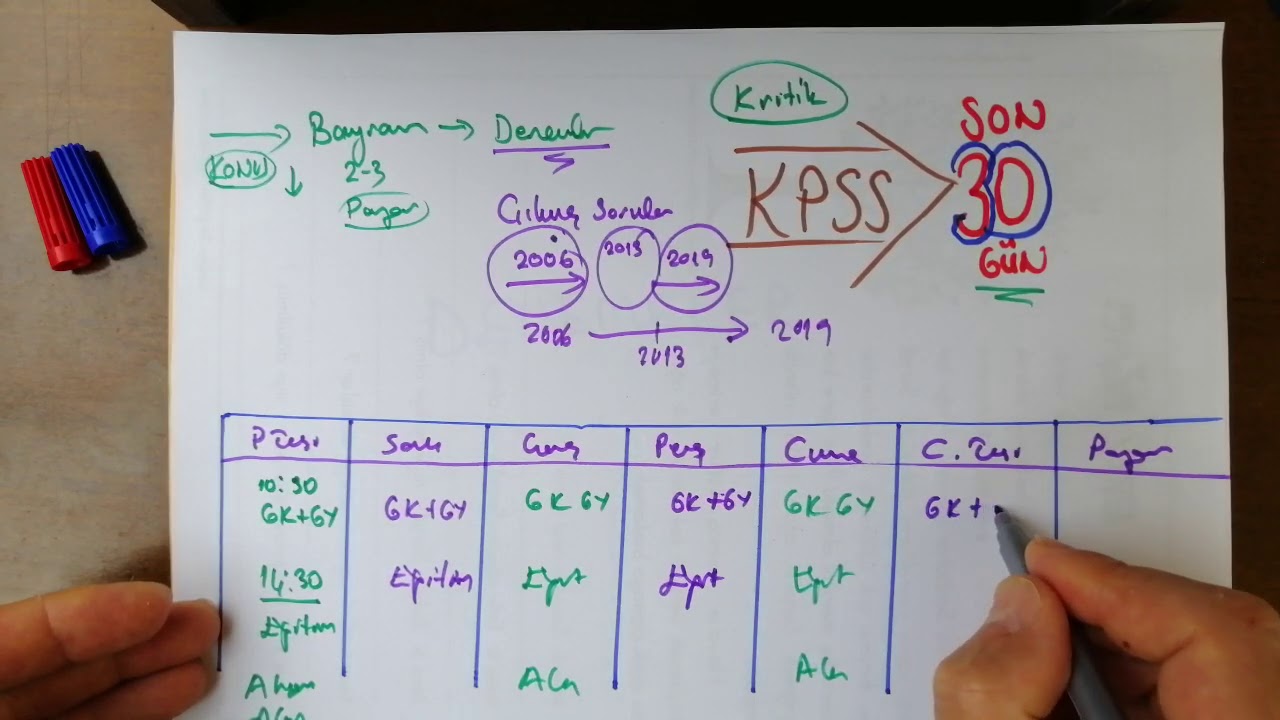 Kritik
SON
30
GÜN
KPSS
Bayram → Deneuler
KONU
2-3
Pazar
Çıkmış Sorular
2006 2013 2019
2006 → 2019
2013
PTesi Salı Çarş Perş Cuma C.Tesi Pazar
10:30
GK+GY GK+GY GK GY GK+GY GK GY GK+
14:30 Eğitim Eğit Eğit Eğit
Eğitim
Akşam Alan Alan
Alan